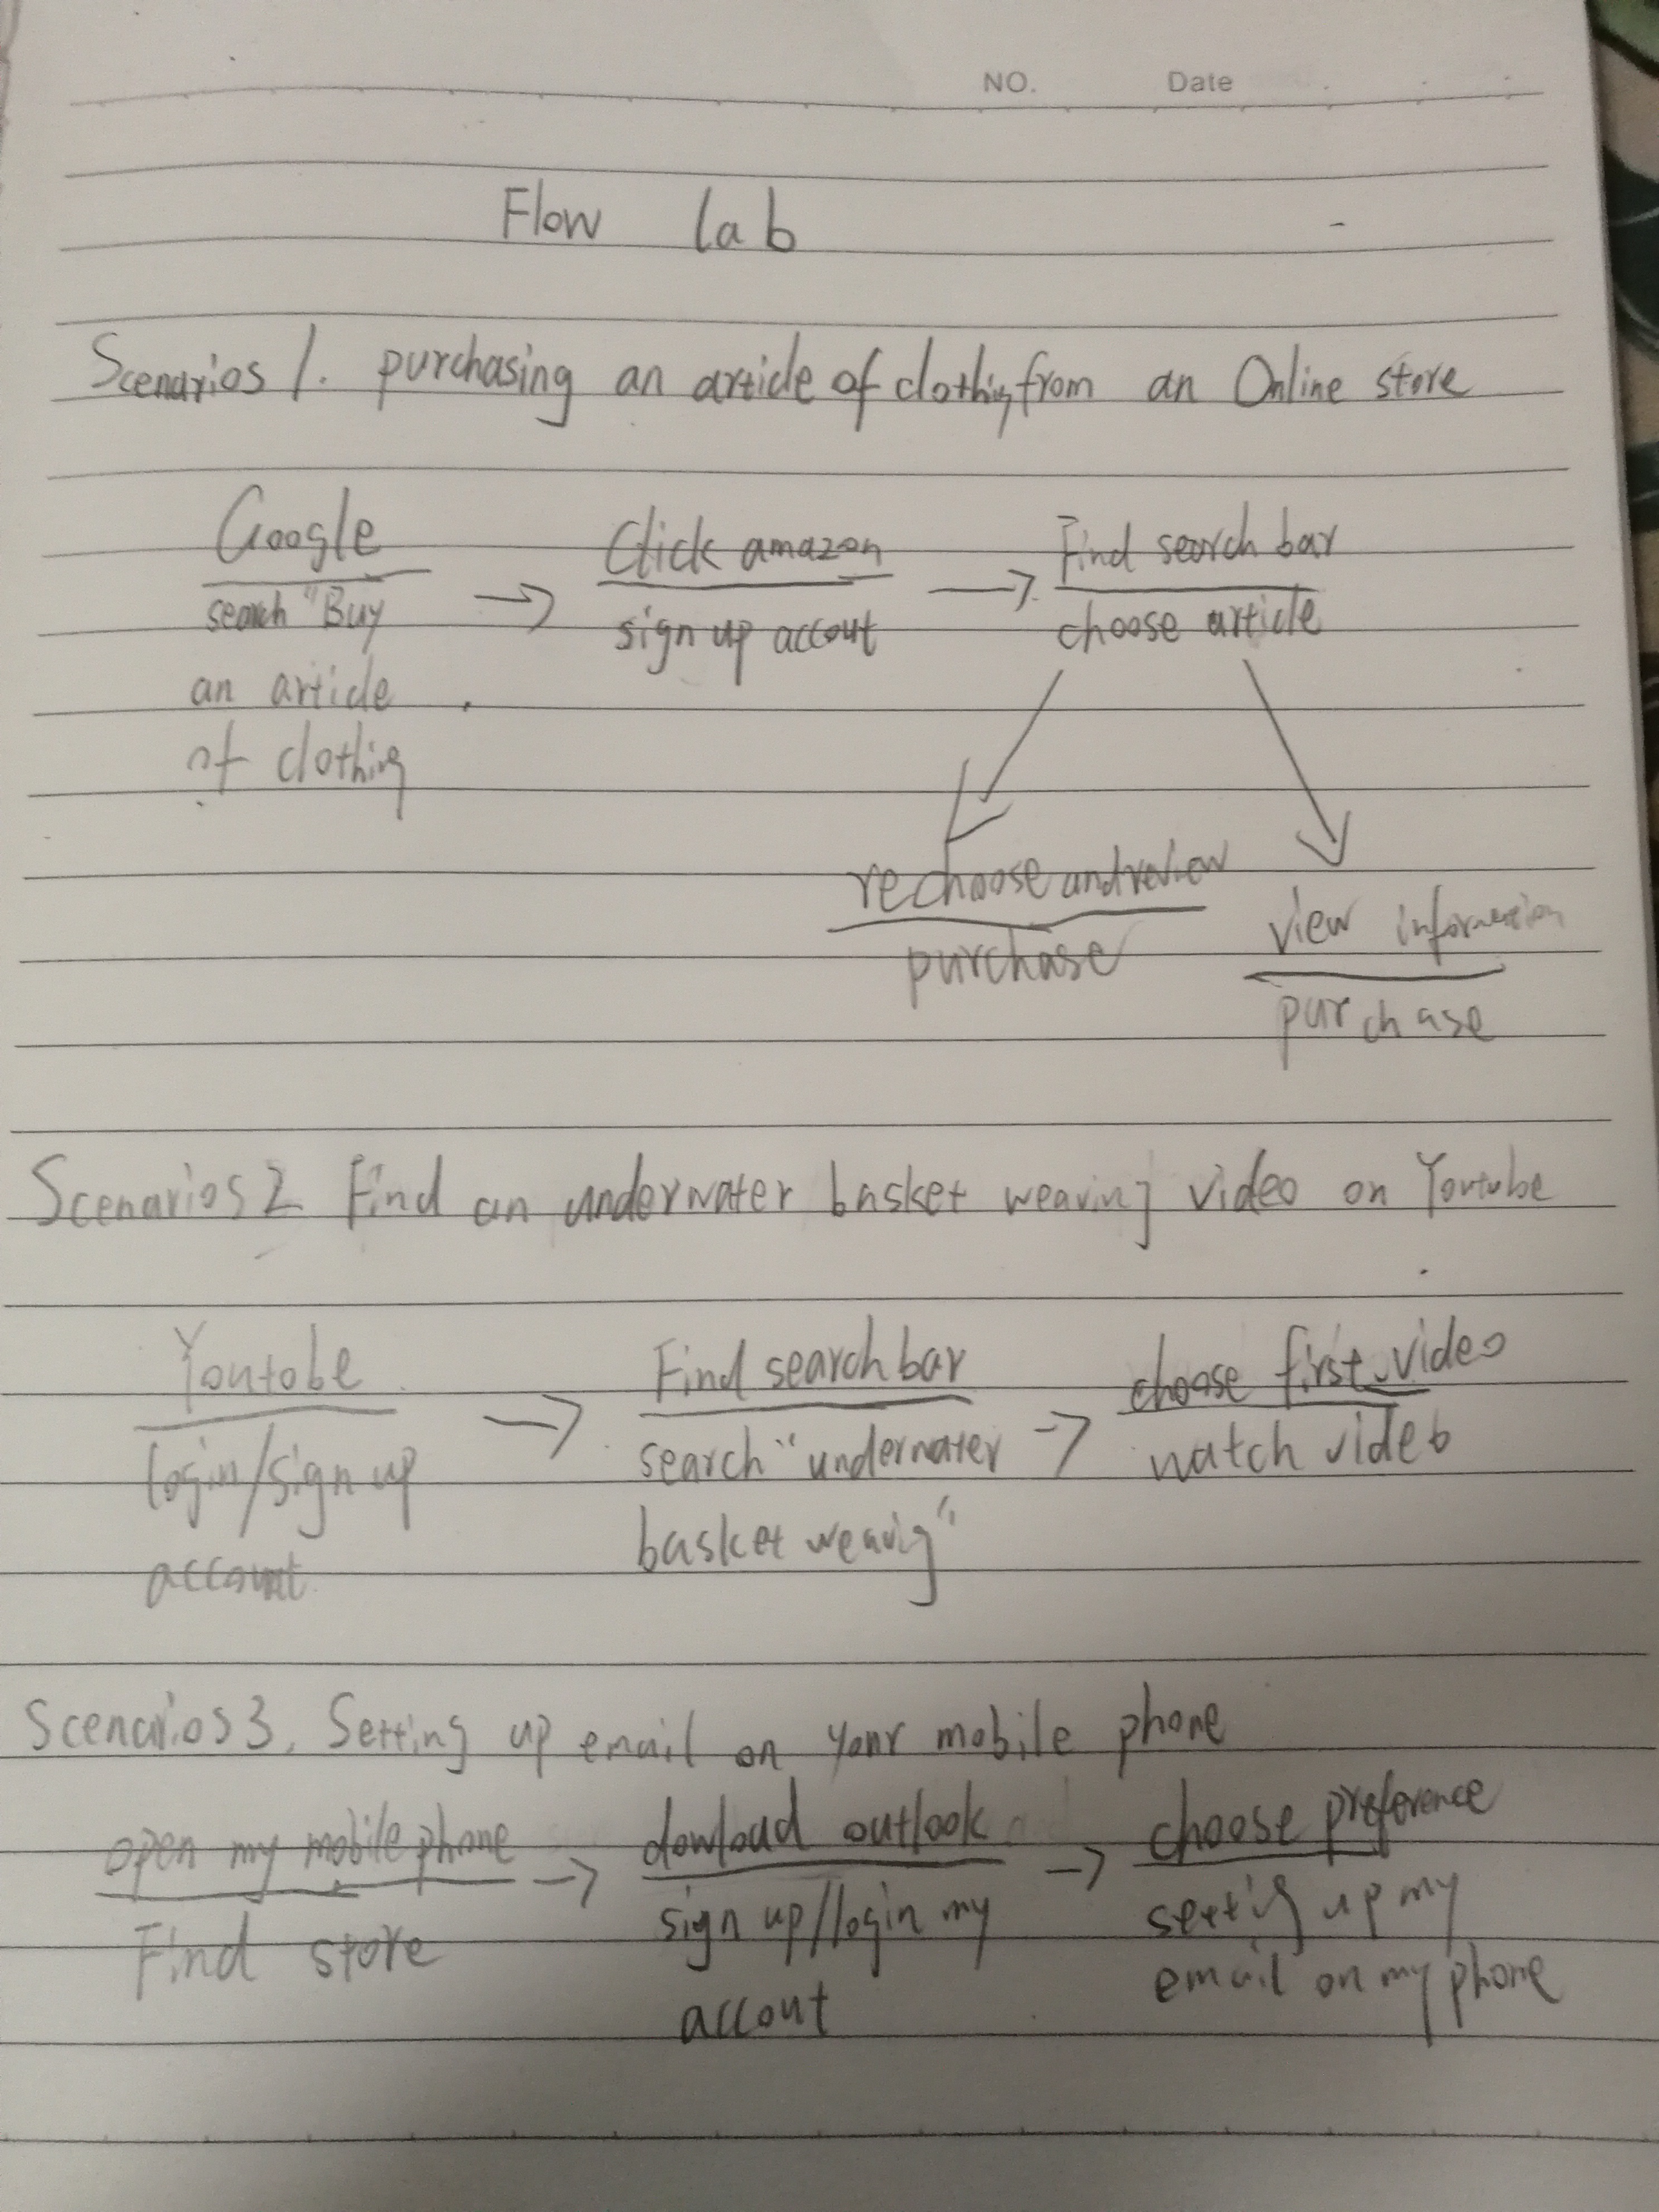 NO. Date
Flow lab
Scenarios 1. purchasing an article of clothing from an Online store
Google
search "Buy
an article
of clothing
Click amazon
sign up accout
Find search bar
choose article
rechoose and review
purchase
view information
purchase
Scenarios 2 Find an underwater basket weaving video on Youtube
Youtobe
login/sign up
account
Find search bar
search "underwater
basket weavig"
choose first video
watch video
Scenarios 3. Setting up email on your mobile phone
open my mobile phone
Find store
dowload outlook
sign up/login my
accout
choose preference
settig up my
email on my phone